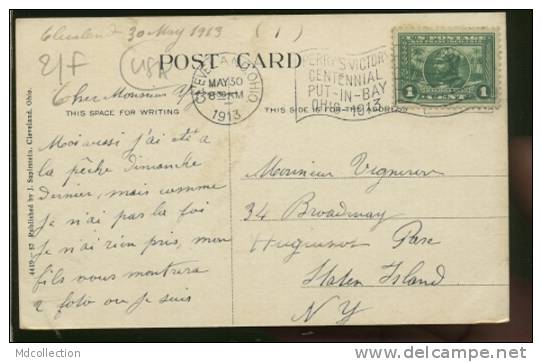 Cleveland 30 May 1913 (1)
POST CARD
2/F
USA
CLEVELAND, OHIO
MAY 30
8:30 AM
1913
PERRY'S VICTORY
CENTENNIAL
PUT-IN-BAY
OHIO 1913
U.S. POSTAGE
1 CENT 1
Cher Monsieur V
THIS SPACE FOR WRITING
THIS SIDE IS FOR THE ADDRESS
Moi aussi j'ai été a
la pêche dimanche
dernier, mais comme
je n'ai pas la foi
je n'ai rien pris, mon
fils vous montrera
2 foto ou je suis
Monsieur Vigneron
34 Broadway
Huguenot Park
Staten Island
N Y
4419—47 Published by J. Sapirstein, Cleveland, Ohio.
MDcollection
http://www.delcampe.net